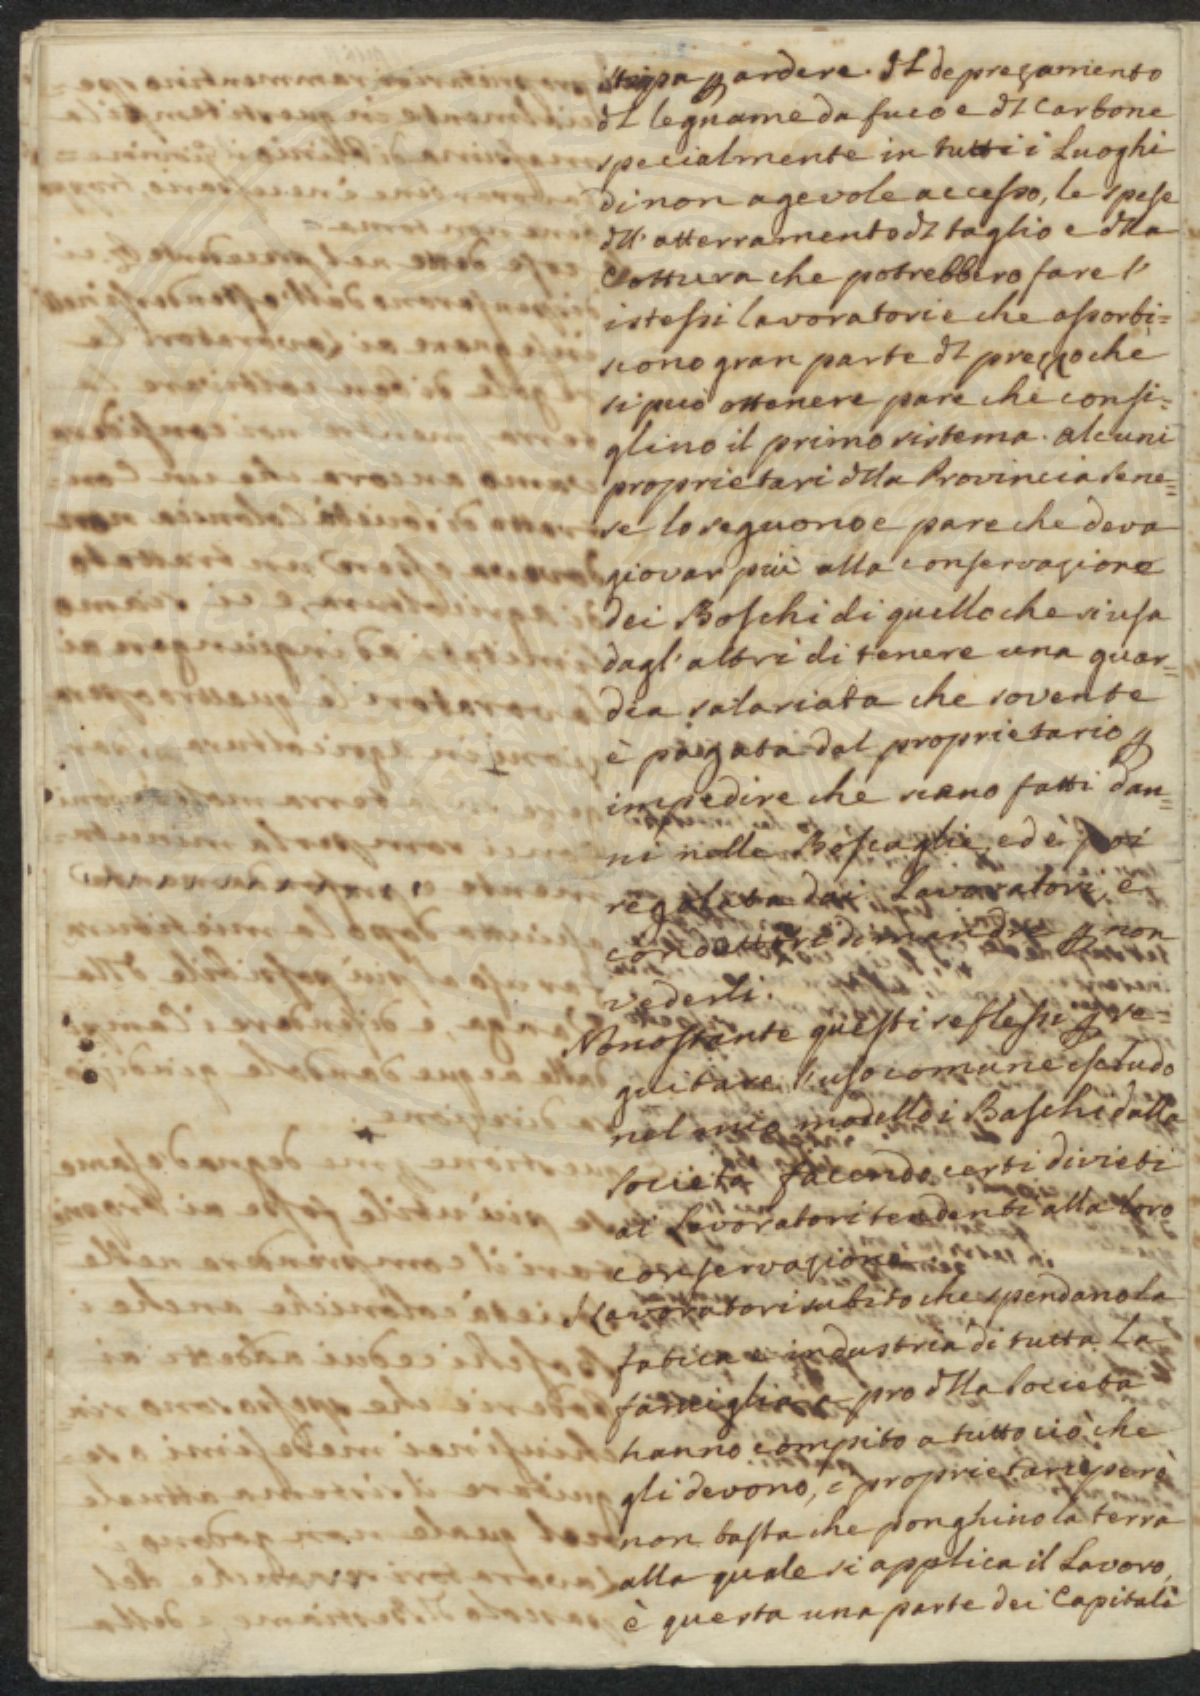 stipa p ardere. Il deprezzamento
dl legname da fuco e dl Carbone
specialmente in tutti i Luoghi
di non agevole accesso, le spese
dll' atterramento dl taglio e dlla
Cottura che potrebbero fare l'
istessi lavoratori e che assorbi=
scono gran parte dl prezzo che
si può ottenere pare che consi=
glino il primo sistema. Alcuni
proprietari dlla Provincia Sene=
se lo seguono e pare che deva
giovar più alla conservazione
dei Boschi di quello che si usa
dagl'altri di tenere una guar=
dia salariata che sovente
è pagata dal proprietario p
impedire che siano fatti dan=
ni nelle Boscaglie, ed è poi
regalata dai Lavoratori, e
conduttori di mandre p non
vederli.
Nonostante questi reflessi p se=
guitare l'uso comune escludo
nel mio modello i Boschi dalla
società facendo certi divieti
ai Lavoratori tendenti alla loro
conservazione.
I Lavoratori subito che spendano la
fatica e industria di tutta la
famiglia a pro dlla Società
hanno compito a tutto ciò che
gli devono, i proprietari però
non basta che ponghino la terra
alla quale si applica il Lavoro,
è questa una parte dei Capitali